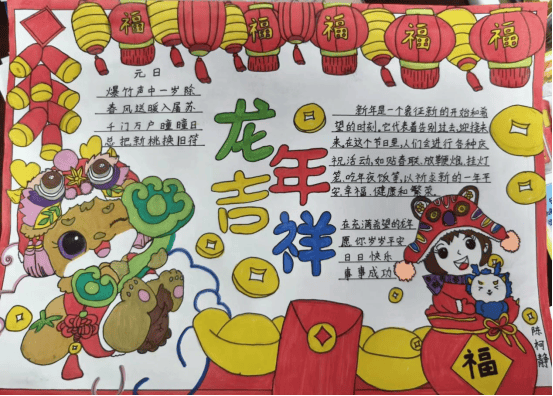 福
福
福
福
福
元日
爆竹声中一岁除
春风送暖入屠苏
千门万户曈曈日
总把新桃换旧符
龙年
吉祥
新年是一个象征新的开始和希
望的时刻,它代表着告别过去,迎接未
来,在这个节日里,人们会进行各种庆
祝活动,如贴春联,放鞭炮,挂灯
笼,吃年夜饭等,以祈求新的一年平
安,幸福,健康和繁荣。
在充满希望的龙年
愿你岁岁平安
日日快乐
事事成功
福
陈柯静